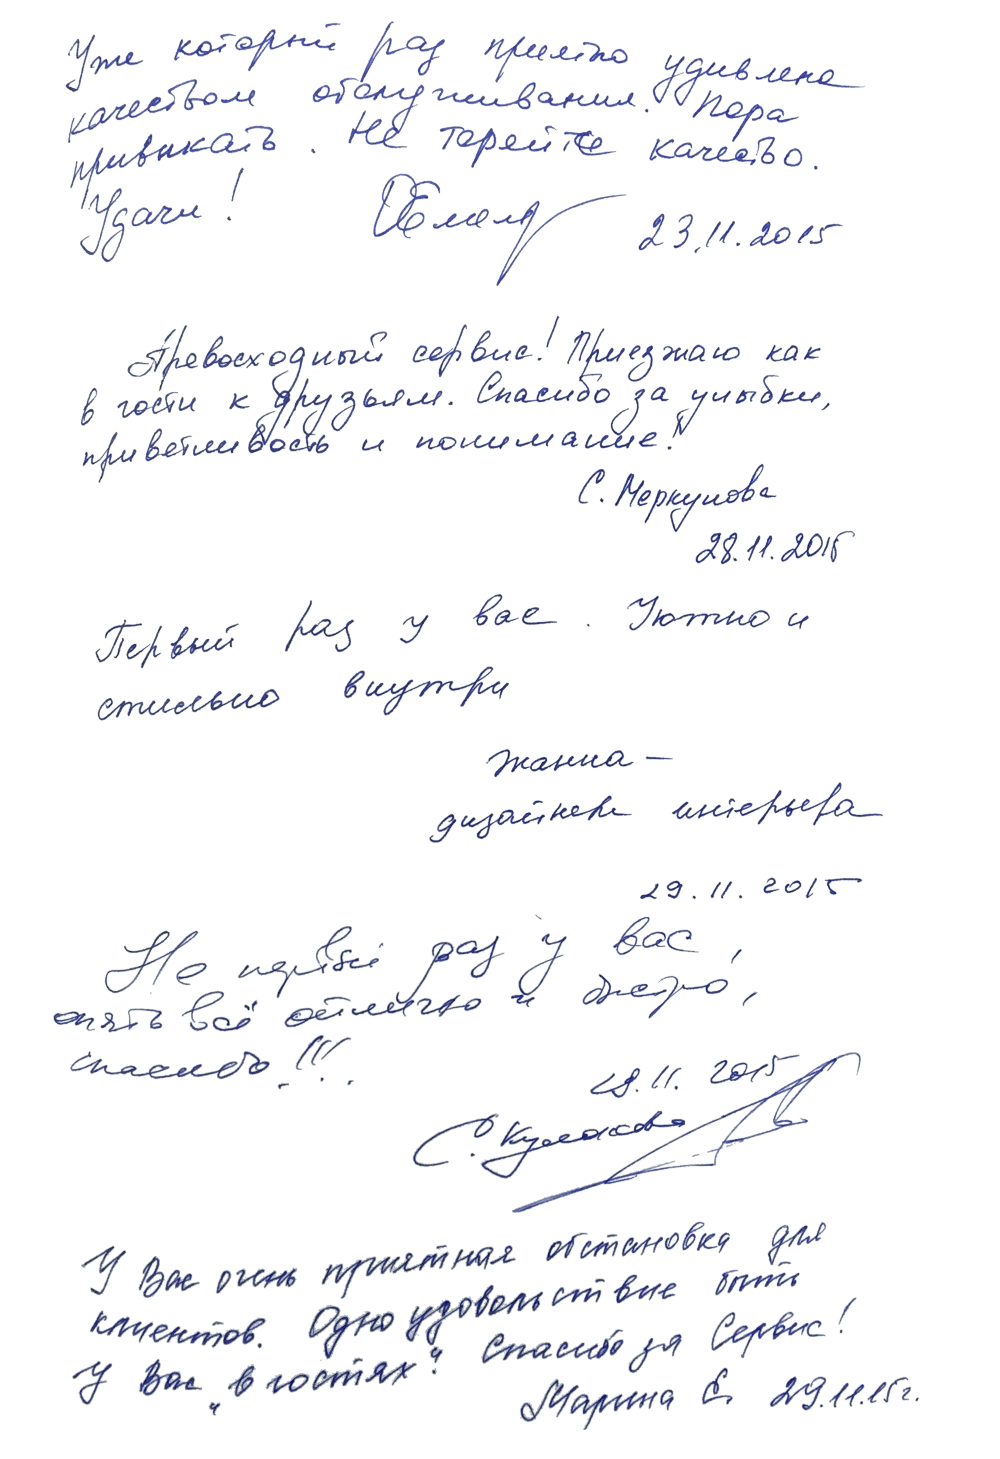 Уже который раз приятно удивлена
качеством обслуживания. Пора
привыкать. Не теряйте качество.
Удачи!
23.11.2015
Превосходный сервис! Приезжаю как
в гости к друзьям. Спасибо за улыбки,
приветливость и понимание!
С. Меркулова
28.11.2015
Первый раз у вас. Уютно и
стильно внутри
Жанна –
дизайнер интерьера
29.11.2015
Не первый раз у вас,
опять всё отлично и быстро,
спасибо!!!
29.11.2015
С. Кулакова
У Вас очень приятная обстановка для
клиентов. Одно удовольствие быть
у Вас „в гостях". Спасибо за Сервис!
Марина С. 29.11.15г.